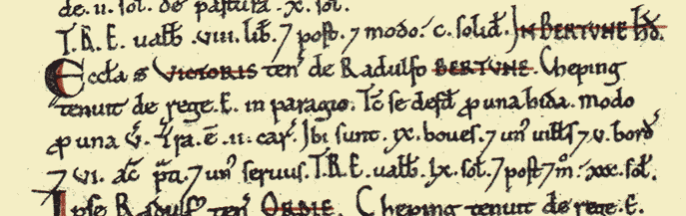 de. ii. sol. de pastura. x. sol.
T.R.E. ualb̄. viii. lib̄. ⁊ post. ⁊ modo. c. solid̄. IN BERTUNE HĐ.
Eccl̄a S VICTORIS ten̄ de Radulfo BERTUNE. Cheping
tenuit de rege. E. in paragio. Tc̄ se defd̄ ꝓ una hida. modo
ꝓ una v̄. Tr̄a. ē. ii. car̄. Ibi sunt. ix. boues. ⁊ un̄ uill̄s ⁊ v. bord̄
⁊ vi. ac̄ p̄ti. ⁊ un̄ seruus. T.R.E. ualb̄. lx. sol. ⁊ post ⁊ m̊. xxx. sol.
Ipse Radulf ten̄ ORDIE. Cheping tenuit de rege. E.